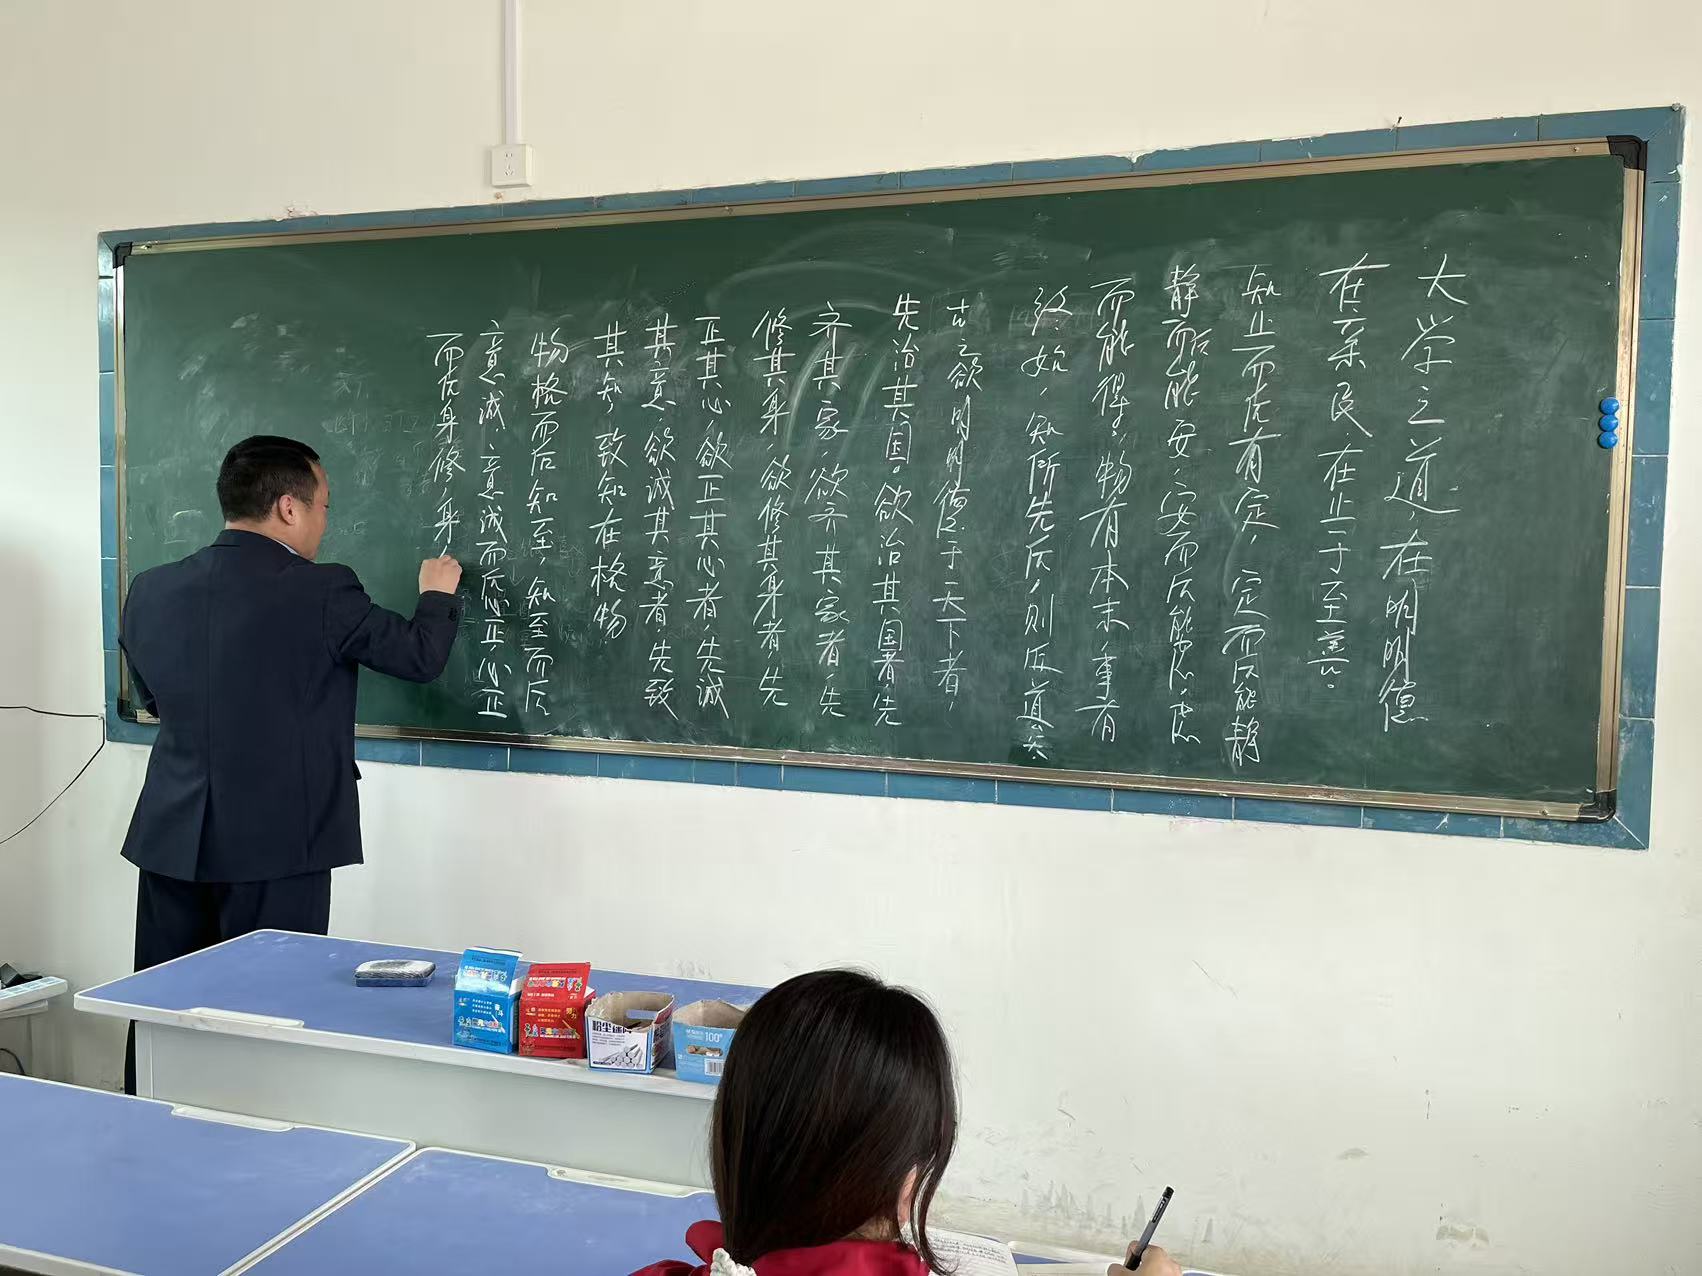 大学之道，在明明德
在亲民，在止于至善。
知止而后有定，定而后能静
静而后能安，安而后能虑，虑
而能得。物有本末，事有
终始，知所先后，则近道矣
古之欲明明德于天下者，
先治其国。欲治其国者，先
齐其家，欲齐其家者，先
修其身，欲修其身者，先
正其心，欲正其心者，先诚
其意，欲诚其意者，先致
其知，致知在格物
物格而后知至，知至而后
意诚，意诚而后心正，心正
而后身修，身
粉尘
100